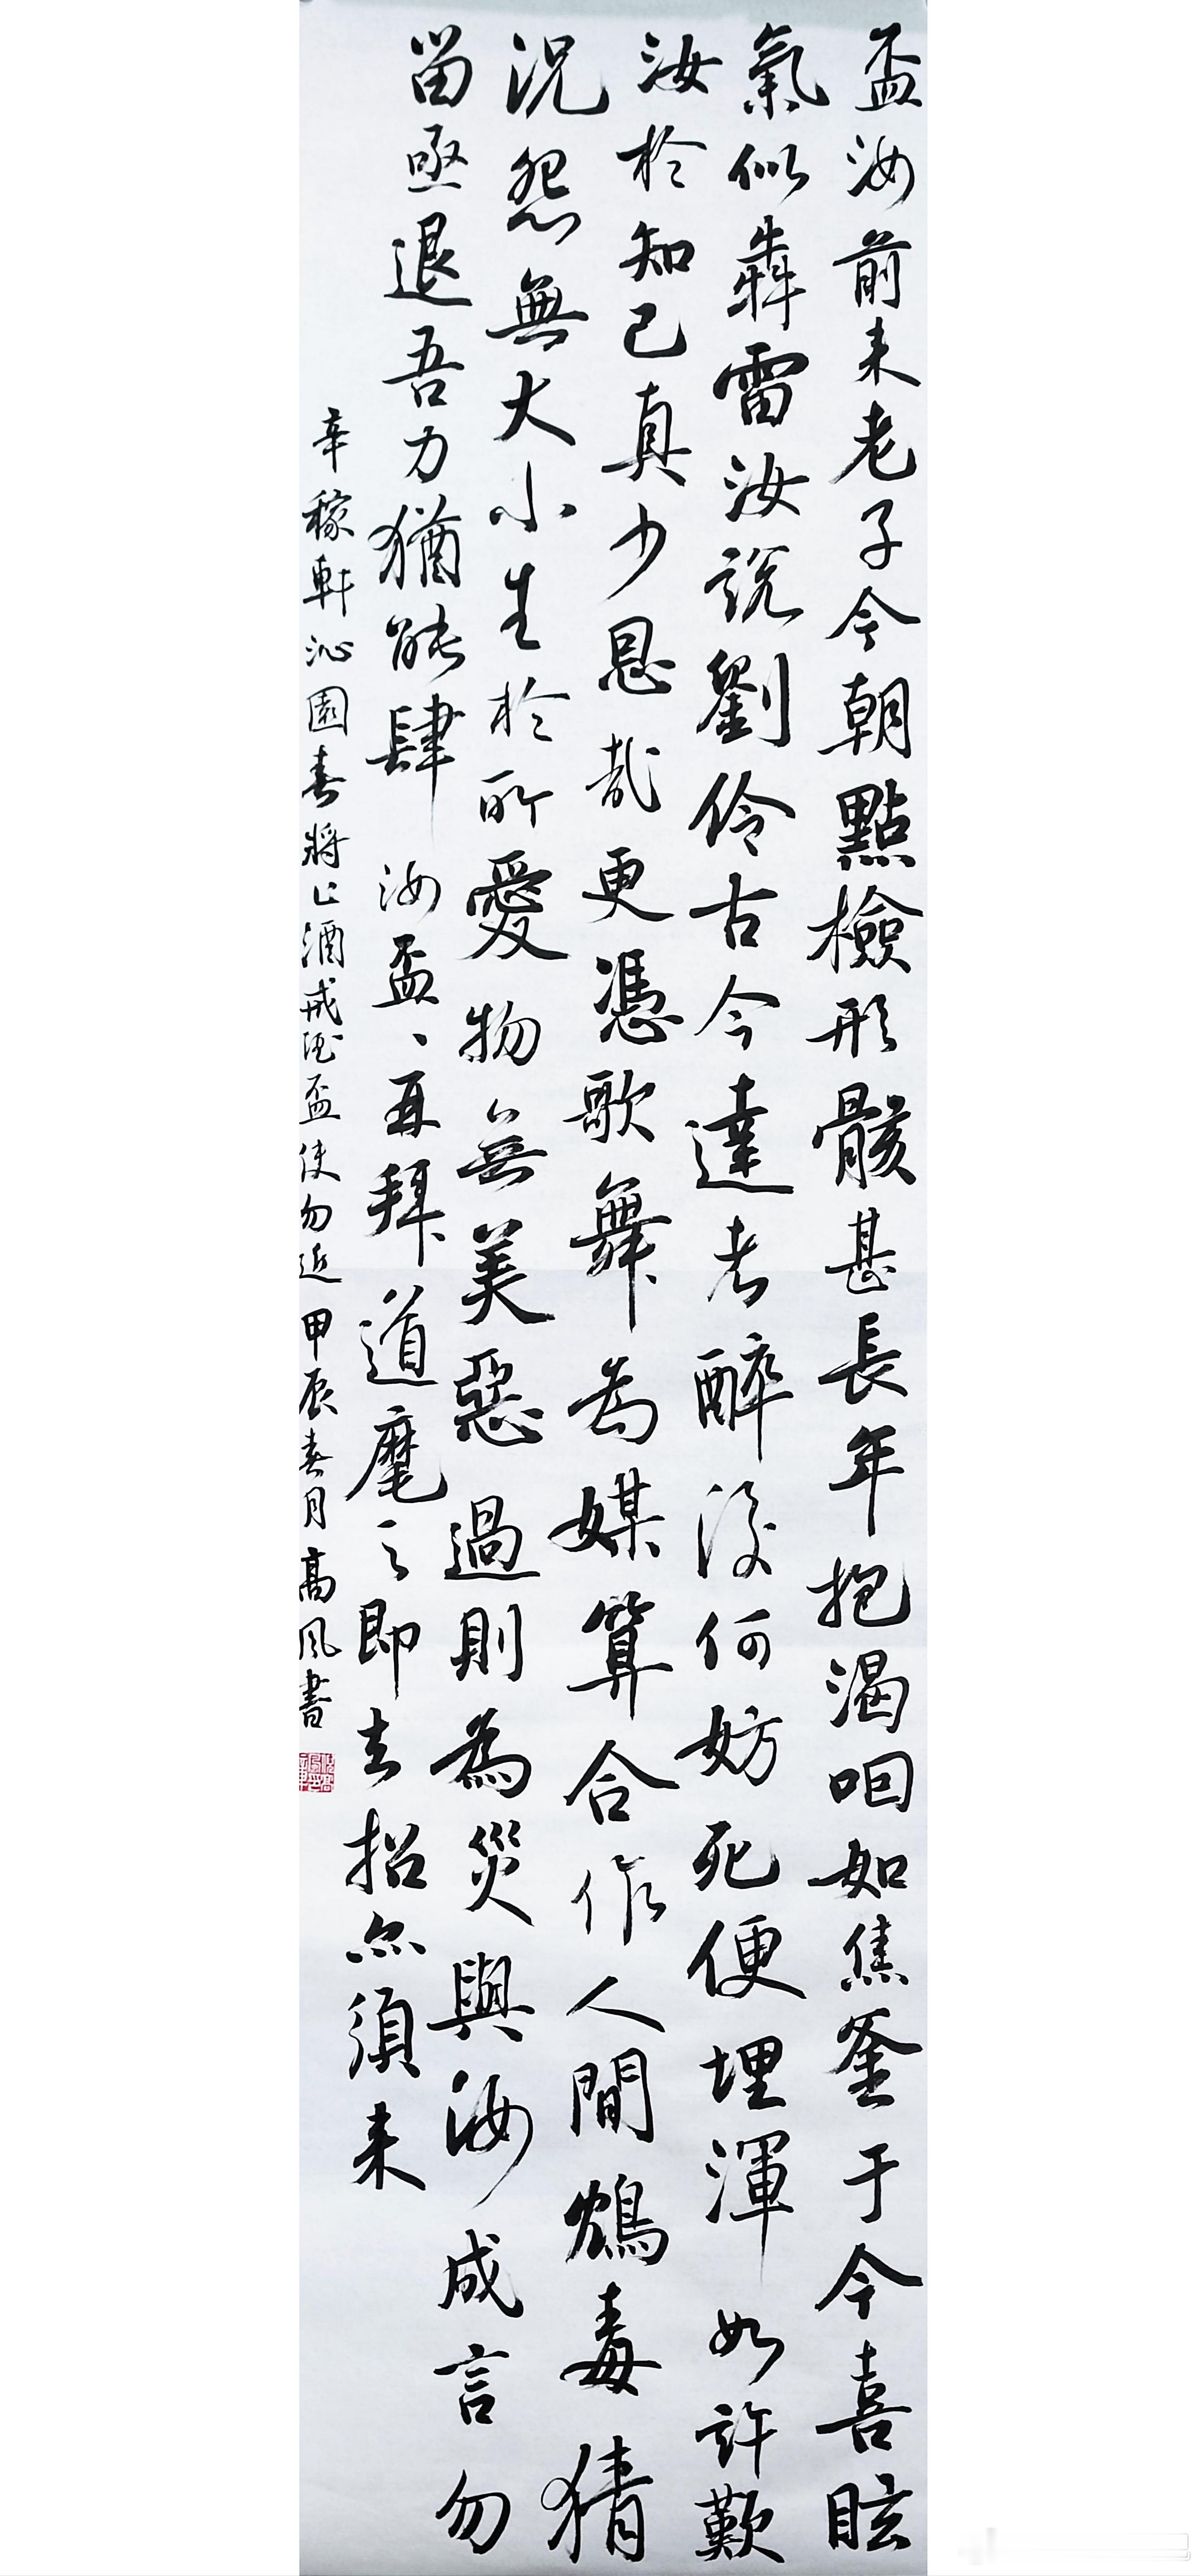 盃汝前来老子今朝點檢形骸甚長年抱渴咽如焦釜于今喜眩
氣似犇雷汝說劉伶古今達者醉後何妨死便埋渾如許歎
汝於知己真少恩哉更憑歌舞為媒算合作人間鴆毒猜
況怨無大小生於所愛物無美惡過則為災與汝成言勿
留亟退吾力猶能肆汝盃、再拜道麾之即去招亦須来
辛稼軒沁園春將止酒戒酒盃使勿近甲辰春月高风書